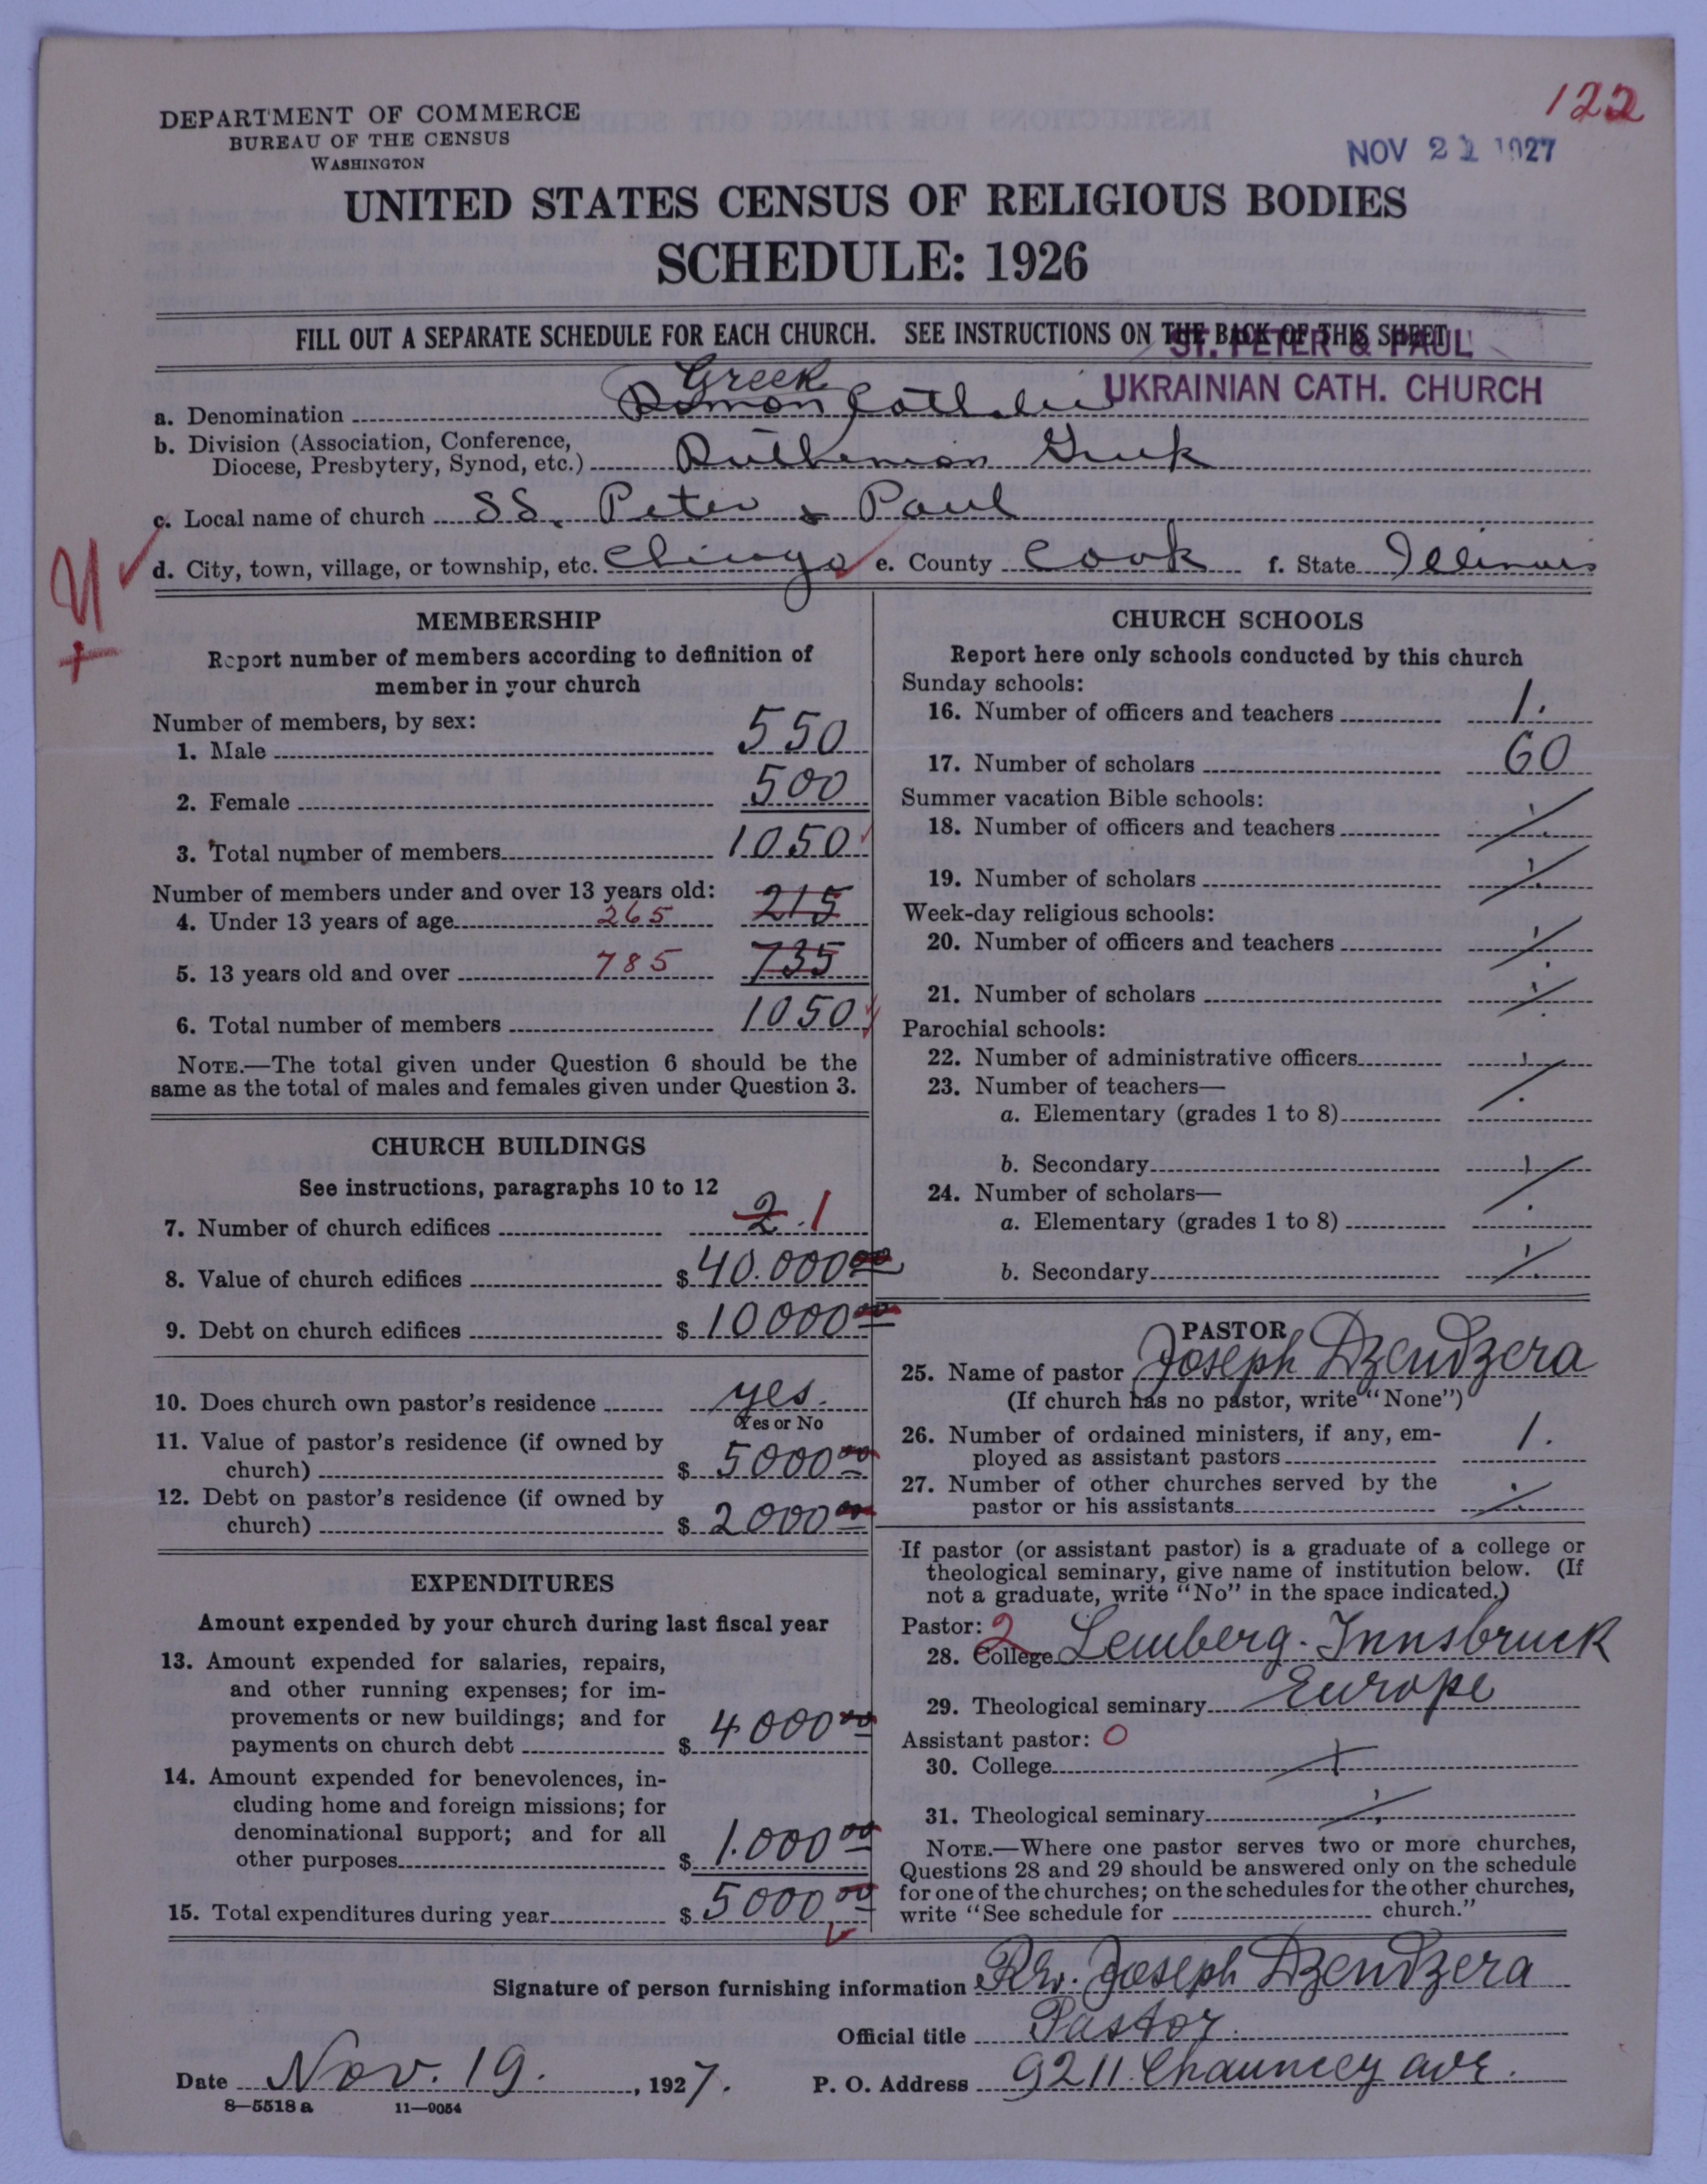 122
DEPARTMENT OF COMMERCE
BUREAU OF THE CENSUS
WASHINGTON
NOV 21 1927
UNITED STATES CENSUS OF RELIGIOUS BODIES
SCHEDULE: 1926
FILL OUT A SEPARATE SCHEDULE FOR EACH CHURCH. SEE INSTRUCTIONS ON THE BACK OF THIS SHEET
ST. PETER & PAUL
UKRAINIAN CATH. CHURCH
Greek
a. Denomination Roman Catholic
b. Division (Association, Conference,
Diocese, Presbytery, Synod, etc.) Ruthenian Greek
c. Local name of church SS. Peter & Paul
d. City, town, village, or township, etc. Chicago e. County Cook f. State Illinois
MEMBERSHIP
Report number of members according to definition of
member in your church
Number of members, by sex:
1. Male 550
2. Female 500
3. Total number of members 1050
Number of members under and over 13 years old:
4. Under 13 years of age 265 215
5. 13 years old and over 785 735
6. Total number of members 1050
NOTE.—The total given under Question 6 should be the
same as the total of males and females given under Question 3.
CHURCH BUILDINGS
See instructions, paragraphs 10 to 12
7. Number of church edifices 2 1
8. Value of church edifices $ 40.000 00
9. Debt on church edifices $ 10000 00
10. Does church own pastor's residence yes.
Yes or No
11. Value of pastor's residence (if owned by
church) $ 5000 00
12. Debt on pastor's residence (if owned by
church) $ 2000 00
EXPENDITURES
Amount expended by your church during last fiscal year
13. Amount expended for salaries, repairs,
and other running expenses; for im-
provements or new buildings; and for
payments on church debt $ 4000 00
14. Amount expended for benevolences, in-
cluding home and foreign missions; for
denominational support; and for all
other purposes $ 1.000 00
15. Total expenditures during year $ 5000 00
CHURCH SCHOOLS
Report here only schools conducted by this church
Sunday schools:
16. Number of officers and teachers 1.
17. Number of scholars 60
Summer vacation Bible schools:
18. Number of officers and teachers
19. Number of scholars
Week-day religious schools:
20. Number of officers and teachers
21. Number of scholars
Parochial schools:
22. Number of administrative officers
23. Number of teachers—
a. Elementary (grades 1 to 8)
b. Secondary
24. Number of scholars—
a. Elementary (grades 1 to 8)
b. Secondary
PASTOR
25. Name of pastor Joseph Dzendzera
(If church has no pastor, write "None")
26. Number of ordained ministers, if any, em-
ployed as assistant pastors 1.
27. Number of other churches served by the
pastor or his assistants
If pastor (or assistant pastor) is a graduate of a college or
theological seminary, give name of institution below. (If
not a graduate, write "No" in the space indicated.)
Pastor: 2
28. College Lemberg - Innsbruck
29. Theological seminary Europe
Assistant pastor: 0
30. College
31. Theological seminary
NOTE.—Where one pastor serves two or more churches,
Questions 28 and 29 should be answered only on the schedule
for one of the churches; on the schedules for the other churches,
write "See schedule for church."
Signature of person furnishing information Rev. Joseph Dzendzera
Official title Pastor.
Date Nov. 19. , 1927. P. O. Address 9211 Chauncey ave.
8—5518 a 11—9054